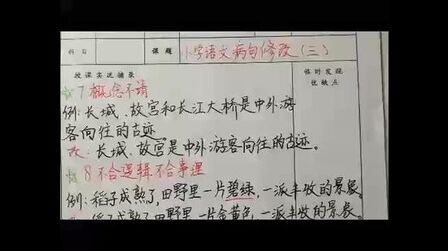 科目 课题 小学语文病句修改(三)
授课实况摘录 临时发现
优缺点
7概念不清
例:长城、故宫和长江大桥是中外游
客向往的古迹。
改:长城、故宫是中外游客向往的古迹。
8不合逻辑不合事理
例:稻子成熟了,田野里一片碧绿,一派丰收的景象。
稻子成熟了,田野里一片金黄色,一派丰收的景象。